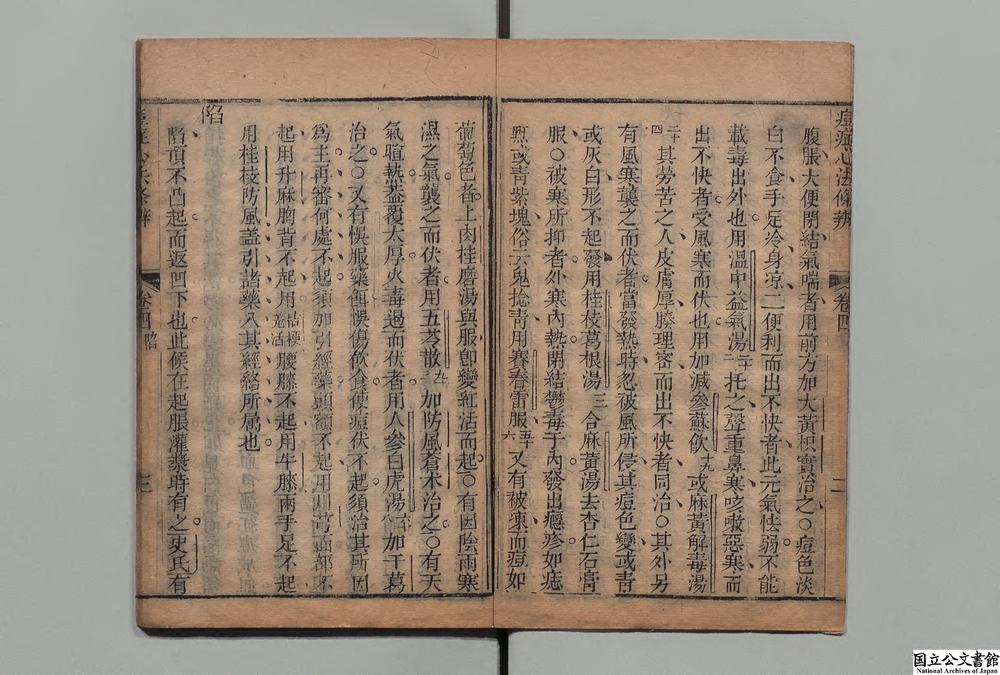 痘疹心法條辨
卷四
二
腹脹大便閉結氣喘者用前方加大黃枳實治之○痘色淡
白不食手足冷身凉二便利而出不快者此元氣怯弱不能
載毒出外也用溫中益氣湯二十托之聲重鼻寒咳嗽惡寒而
出不快者受風寒而伏也用加減參蘇飲十九或麻黃解毒湯
二十四其勞苦之人皮膚厚腠理密而出不快者同治○其外另
有風寒襲之而伏者當發熱時忽被風所侵其痘色變或青
或灰白形不起發用桂枝葛根湯三合麻黃湯去杏仁石膏
服○被寒所抑者外寒內熱閉結鬱毒于內發出癮疹如痣
點或青紫塊俗云鬼捻青用賽春雷服五十六又有被凍而痘如
葡萄色者上肉桂磨湯與服卽變紅活而起○有因陰雨寒
濕之氣襲之而伏者用五苓散九加防風蒼朮治之○有天
氣暄熱葢覆太厚火毒過而伏者用人參白虎湯加干葛
治之○又有悞服藥餌悞傷飲食使痘伏不起須治其所因
爲主再審何處不起須加引經藥頭額不起用川芎面部不
起用升麻胸背不起用桔梗羌活腰膝不起用牛膝兩手足不起
用桂枝防風蓋引諸藥入其經絡所屬也
陷
陷頂不凸起而返凹下也此候在起脹灌漿時有之史氏有
卷四
陷
三
国立公文書館
National Archives of Japan